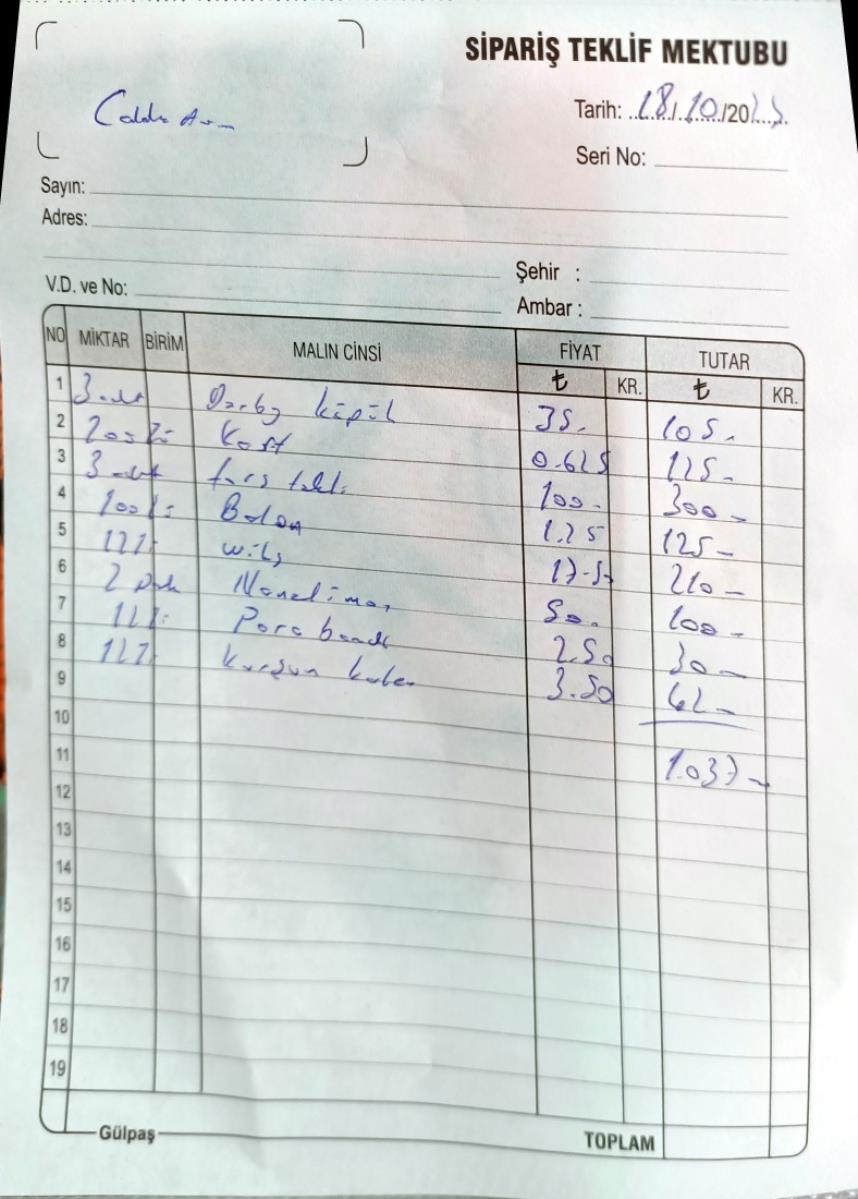 SİPARİŞ TEKLİF MEKTUBU
Tarih: 18/10/20
Seri No:
Sayın:
Adres:
Şehir :
V.D. ve No:
Ambar :
NO MİKTAR BİRİM MALIN CİNSİ FİYAT TUTAR
₺ KR. ₺ KR.
1 3 adet Derby köpük 35. 105.-
2 200 lü Kart 0.625 125-
3 3 adet 100.- 300-
4 100 lü Balon 1.25 125-
5 12 li 17.50 210-
6 2 Nanelimon 50.- 100-
7 12 li Para 2.50 30-
8 12 li Kurşun kalem 3.50 42-
9
10
11 1.037-
12
13
14
15
16
17
18
19
Gülpaş TOPLAM